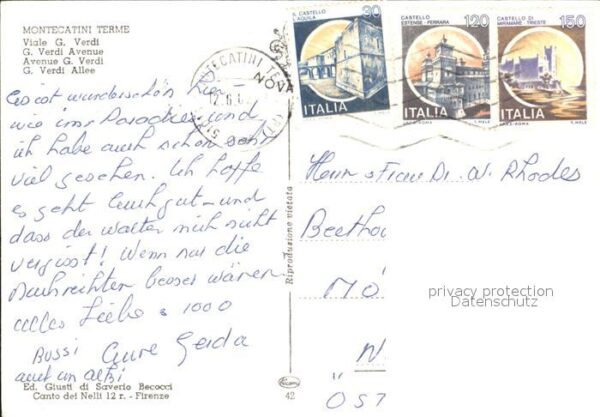 MONTECATINI TERME
Viale G. Verdi
G. Verdi Avenue
Avenue G. Verdi
G. Verdi Allee
Es ist wunderschön hier –
wie im Paradies und
ich habe auch schon sehr
viel gesehen. Ich hoffe
es geht Euch gut – und
dass der Walter mich nicht
vergisst! Wenn nur die
Nachrichten besser wären
alles Liebe & 1000
Bussi Eure Gerda
Ed. Giusti di Saverio Becocci
Canto dei Nelli 12 r. - Firenze
Riproduzione vietata
42
MONTECATINI TE
NOVA
IL CASTELLO
L'AQUILA
30
ITALIA
CASTELLO
ESTENSE FERRARA
120
ITALIA
CASTELLO DI
MIRAMARE TRIESTE
150
ITALIA
Herrn & Frau Dr. W. Rhodes
Beetho
MÖ
ÖST
privacy protection
Datenschutz